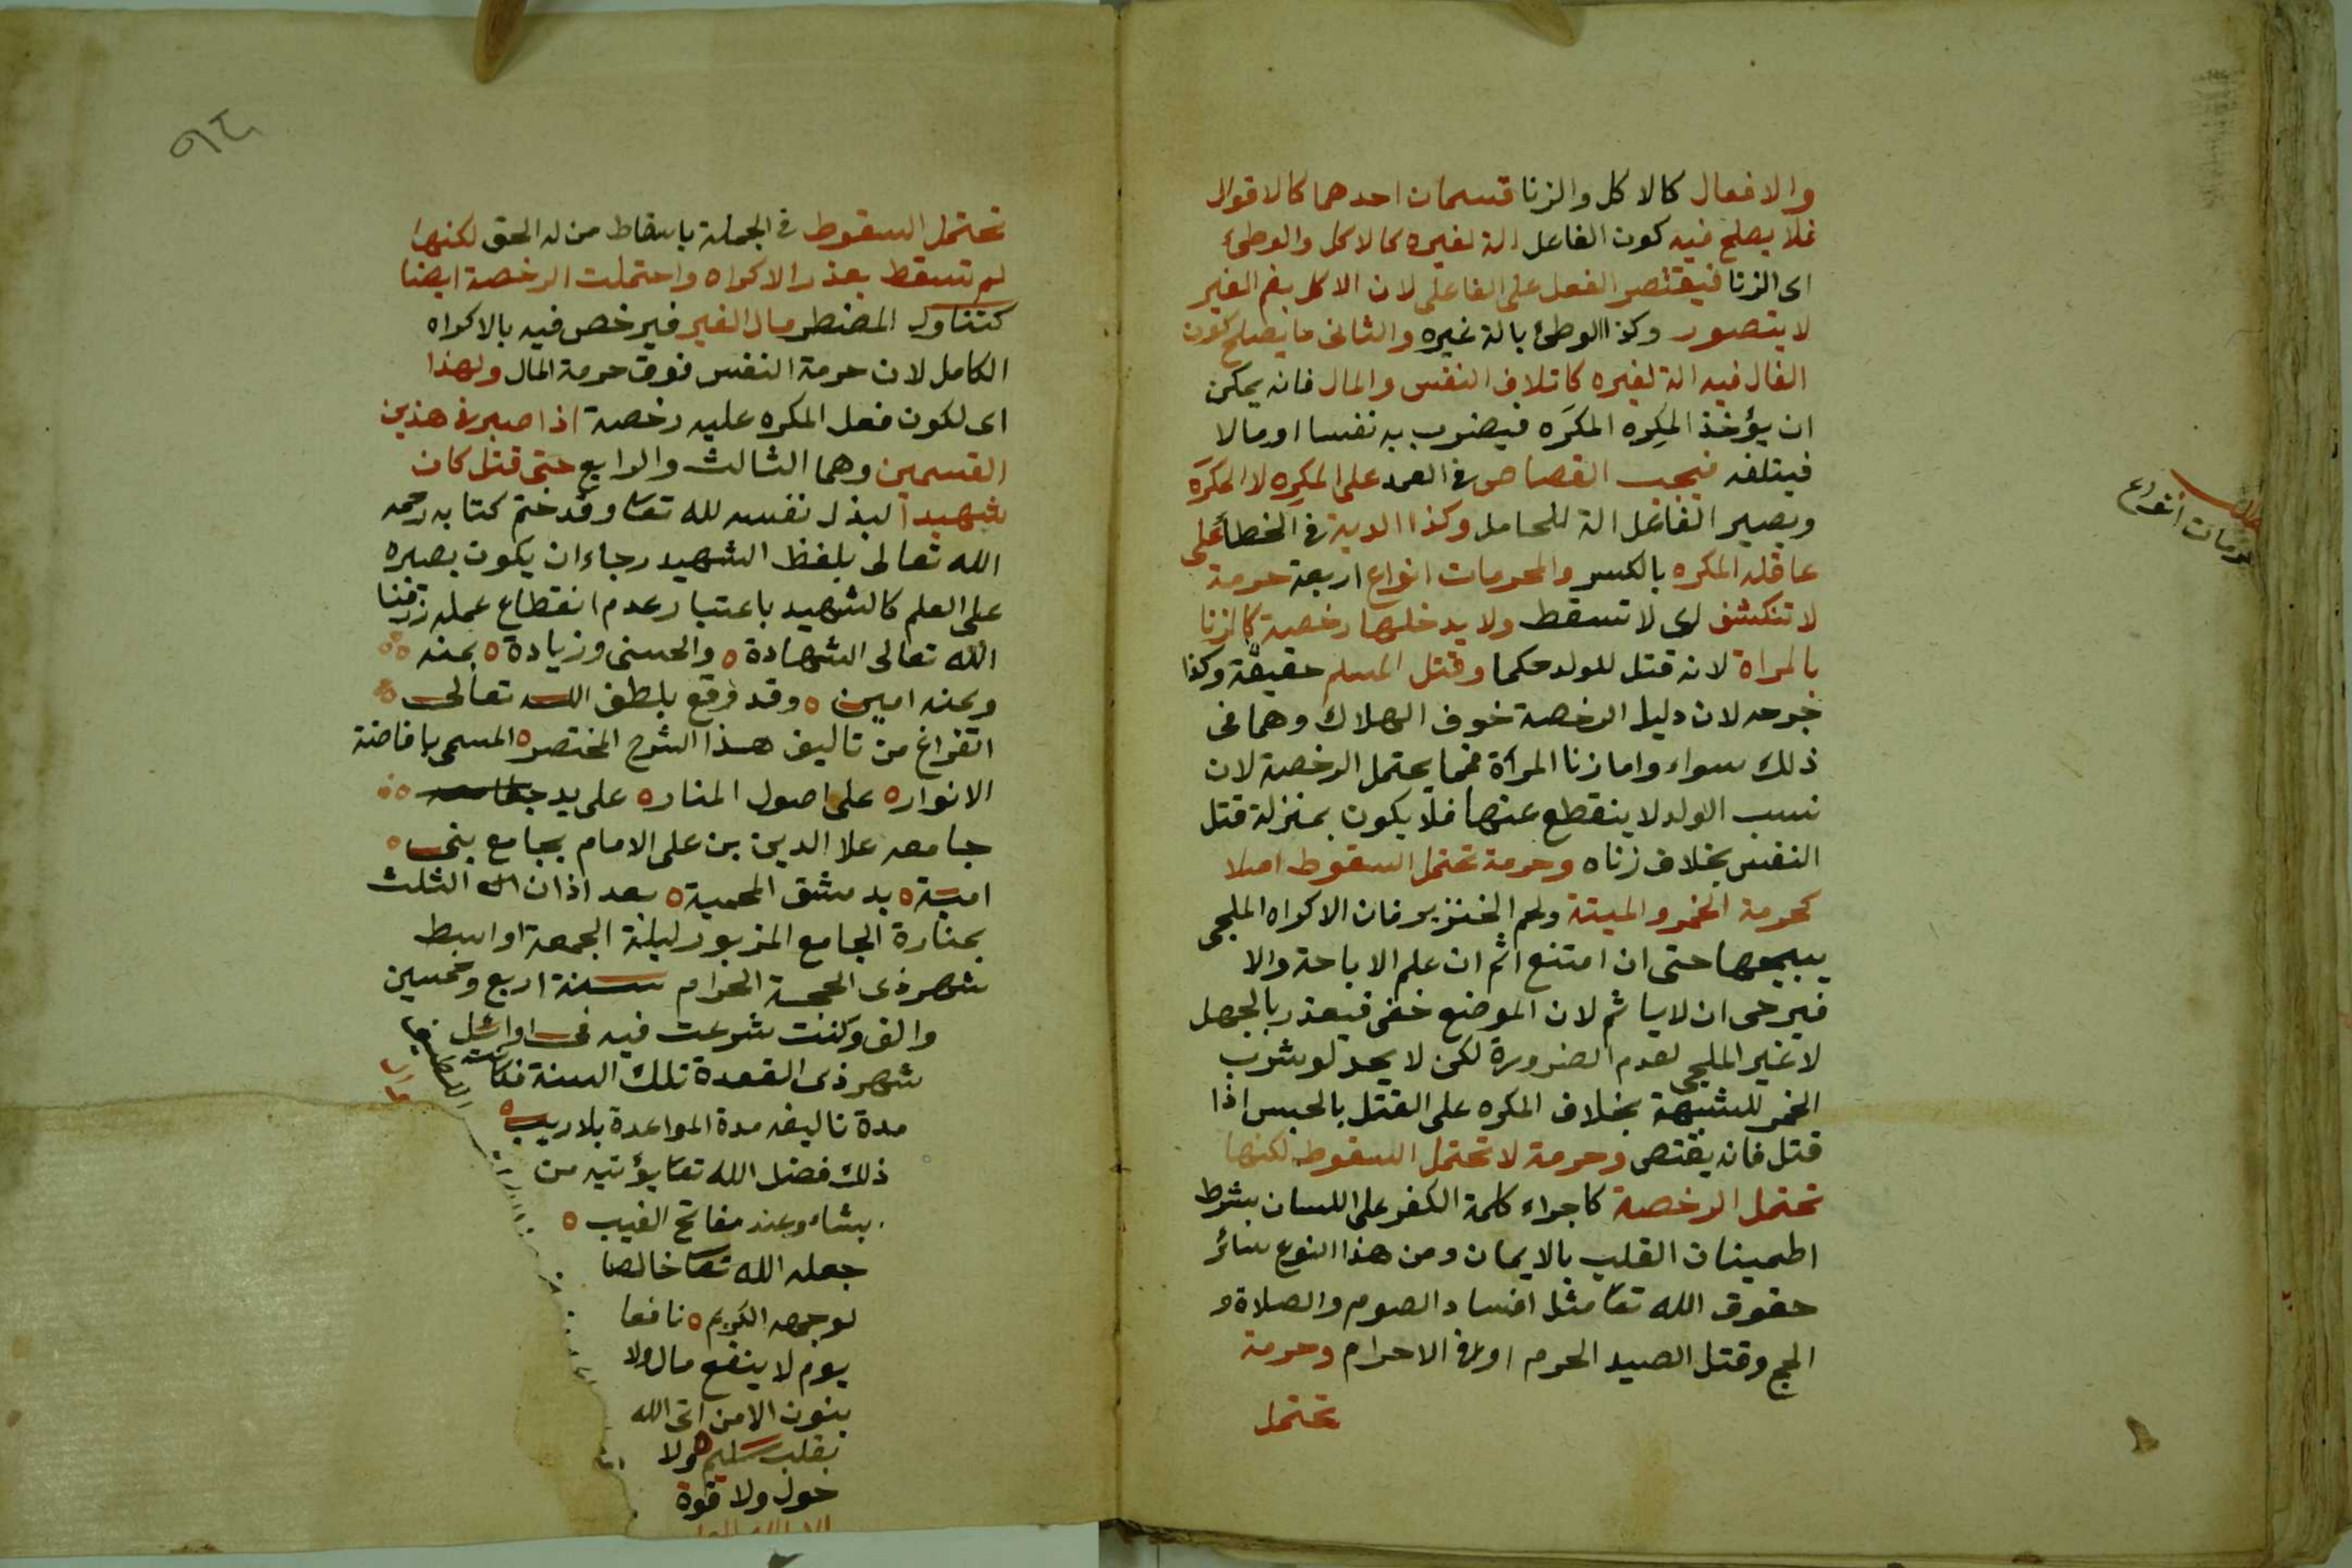 والافعال كالاكل والزنا قسمان احدهما كالاقوال
فلا يصلح فيه كون الفاعل الة لغيره كالاكل والوطئ
اى الزنا فيقتصر الفعل على الفاعل لان الاكل بفم الغير
لا يتصور وكذا الوطئ بالة غيره والثانى ما يصلح كون
الفال فيه الة لغيره كاتلاف النفس والمال فانه يمكن
ان يؤخذ المكِره المكرَه فيضرب به نفسا او مالا
فيتلفه فيجب القصاص فى العمد على المكِره لا المكرَه
ويصير الفاعل الة للحامل وكذا الدية فى الخطأ على
عاقلة المكره بالكسر والمحرمات انواع اربعة حرمة
لا تنكشف اى لا تسقط ولا يدخلها رخصة كالزنا
بالمراة لانه قتل للولد حكما وقتل المسلم حقيقة وكذا
جرحه لان دليل الرخصة خوف الهلاك وهما فى
ذلك سواء واما زنا المرأة فمما يحتمل الرخصة لان
نسب الولد لا ينقطع عنها فلا يكون بمنزلة قتل
النفس بخلاف زناه وحرمة تحتمل السقوط اصلا
كحرمة الخمر والميتة ولحم الخنزير فان الاكراه الملجى
يبيحها حتى ان امتنع اثم ان علم الاباحة والا
فيرجى ان لا ياثم لان الموضع خفى فيعذر بالجهل
لا غير الملجى لعدم الضرورة لكن لا يحد لو شرب
الخمر للشبهة بخلاف المكره على القتل بالحبس اذا
قتل فانه يقتص وحرمة لا تحتمل السقوط لكنها
تحتمل الرخصة كاجراء كلمة الكفر على اللسان بشرط
اطمينان القلب بالايمان ومن هذا النوع سائر
حقوق الله تعا مثل افساد الصوم والصلاة و
الحج وقتل الصيد الحرم او فى الاحرام وحرمة
تحتمل
انواع
تحتمل السقوط فى الجملة باسقاط من له الحق لكنها
لم تسقط بعذر الاكراه واحتملت الرخصة ايضا
كتناول المضطر مال الغير فيرخص فيه بالاكراه
الكامل لان حرمة النفس فوق حرمة المال ولهذا
اى لكون فعل المكره عليه رخصة اذا صبر فى هذين
القسمين وهما الثالث والرابع حتى قتل كان
شهيدا لبذل نفسه لله تعا وقد ختم كتابه رحمه
الله تعالى بلفظ الشهيد رجاء ان يكون بصبره
على العلم كالشهيد باعتبار عدم انقطاع عمله رزقنا
الله تعالى الشهادة ه والحسنى وزيادة ه بمنه
ويمنه امين ه وقد وقع بلطف الله تعالى
الفراغ من تاليف هذا الشرح المختصر ه المسمى بافاضة
الانوار ه على اصول المنار ه على يد
جامعه علا الدين بن على الامام بجامع بنى ه
امية ه بدمشق المحمية ه بعد اذان الثلث
بمنارة الجامع المزبور ليلة الجمعة اواسط
شهر ذى الحجة الحرام سنة اربع وخمسين
والف وكنت شرعت فيه فى اوائل
شهر ذى القعدة تلك السنة فكانت
مدة تاليفه مدة المواعدة بلا ريب ه
ذلك فضل الله تعا يؤتيه من
يشاء وعنده مفاتح الغيب ه
جعله الله تعا خالصا
لوجهه الكريم ه نافعا
يوم لا ينفع مال ولا
بنون الا من اتى الله
بقلب سليم ه ولا
حول ولا قوة